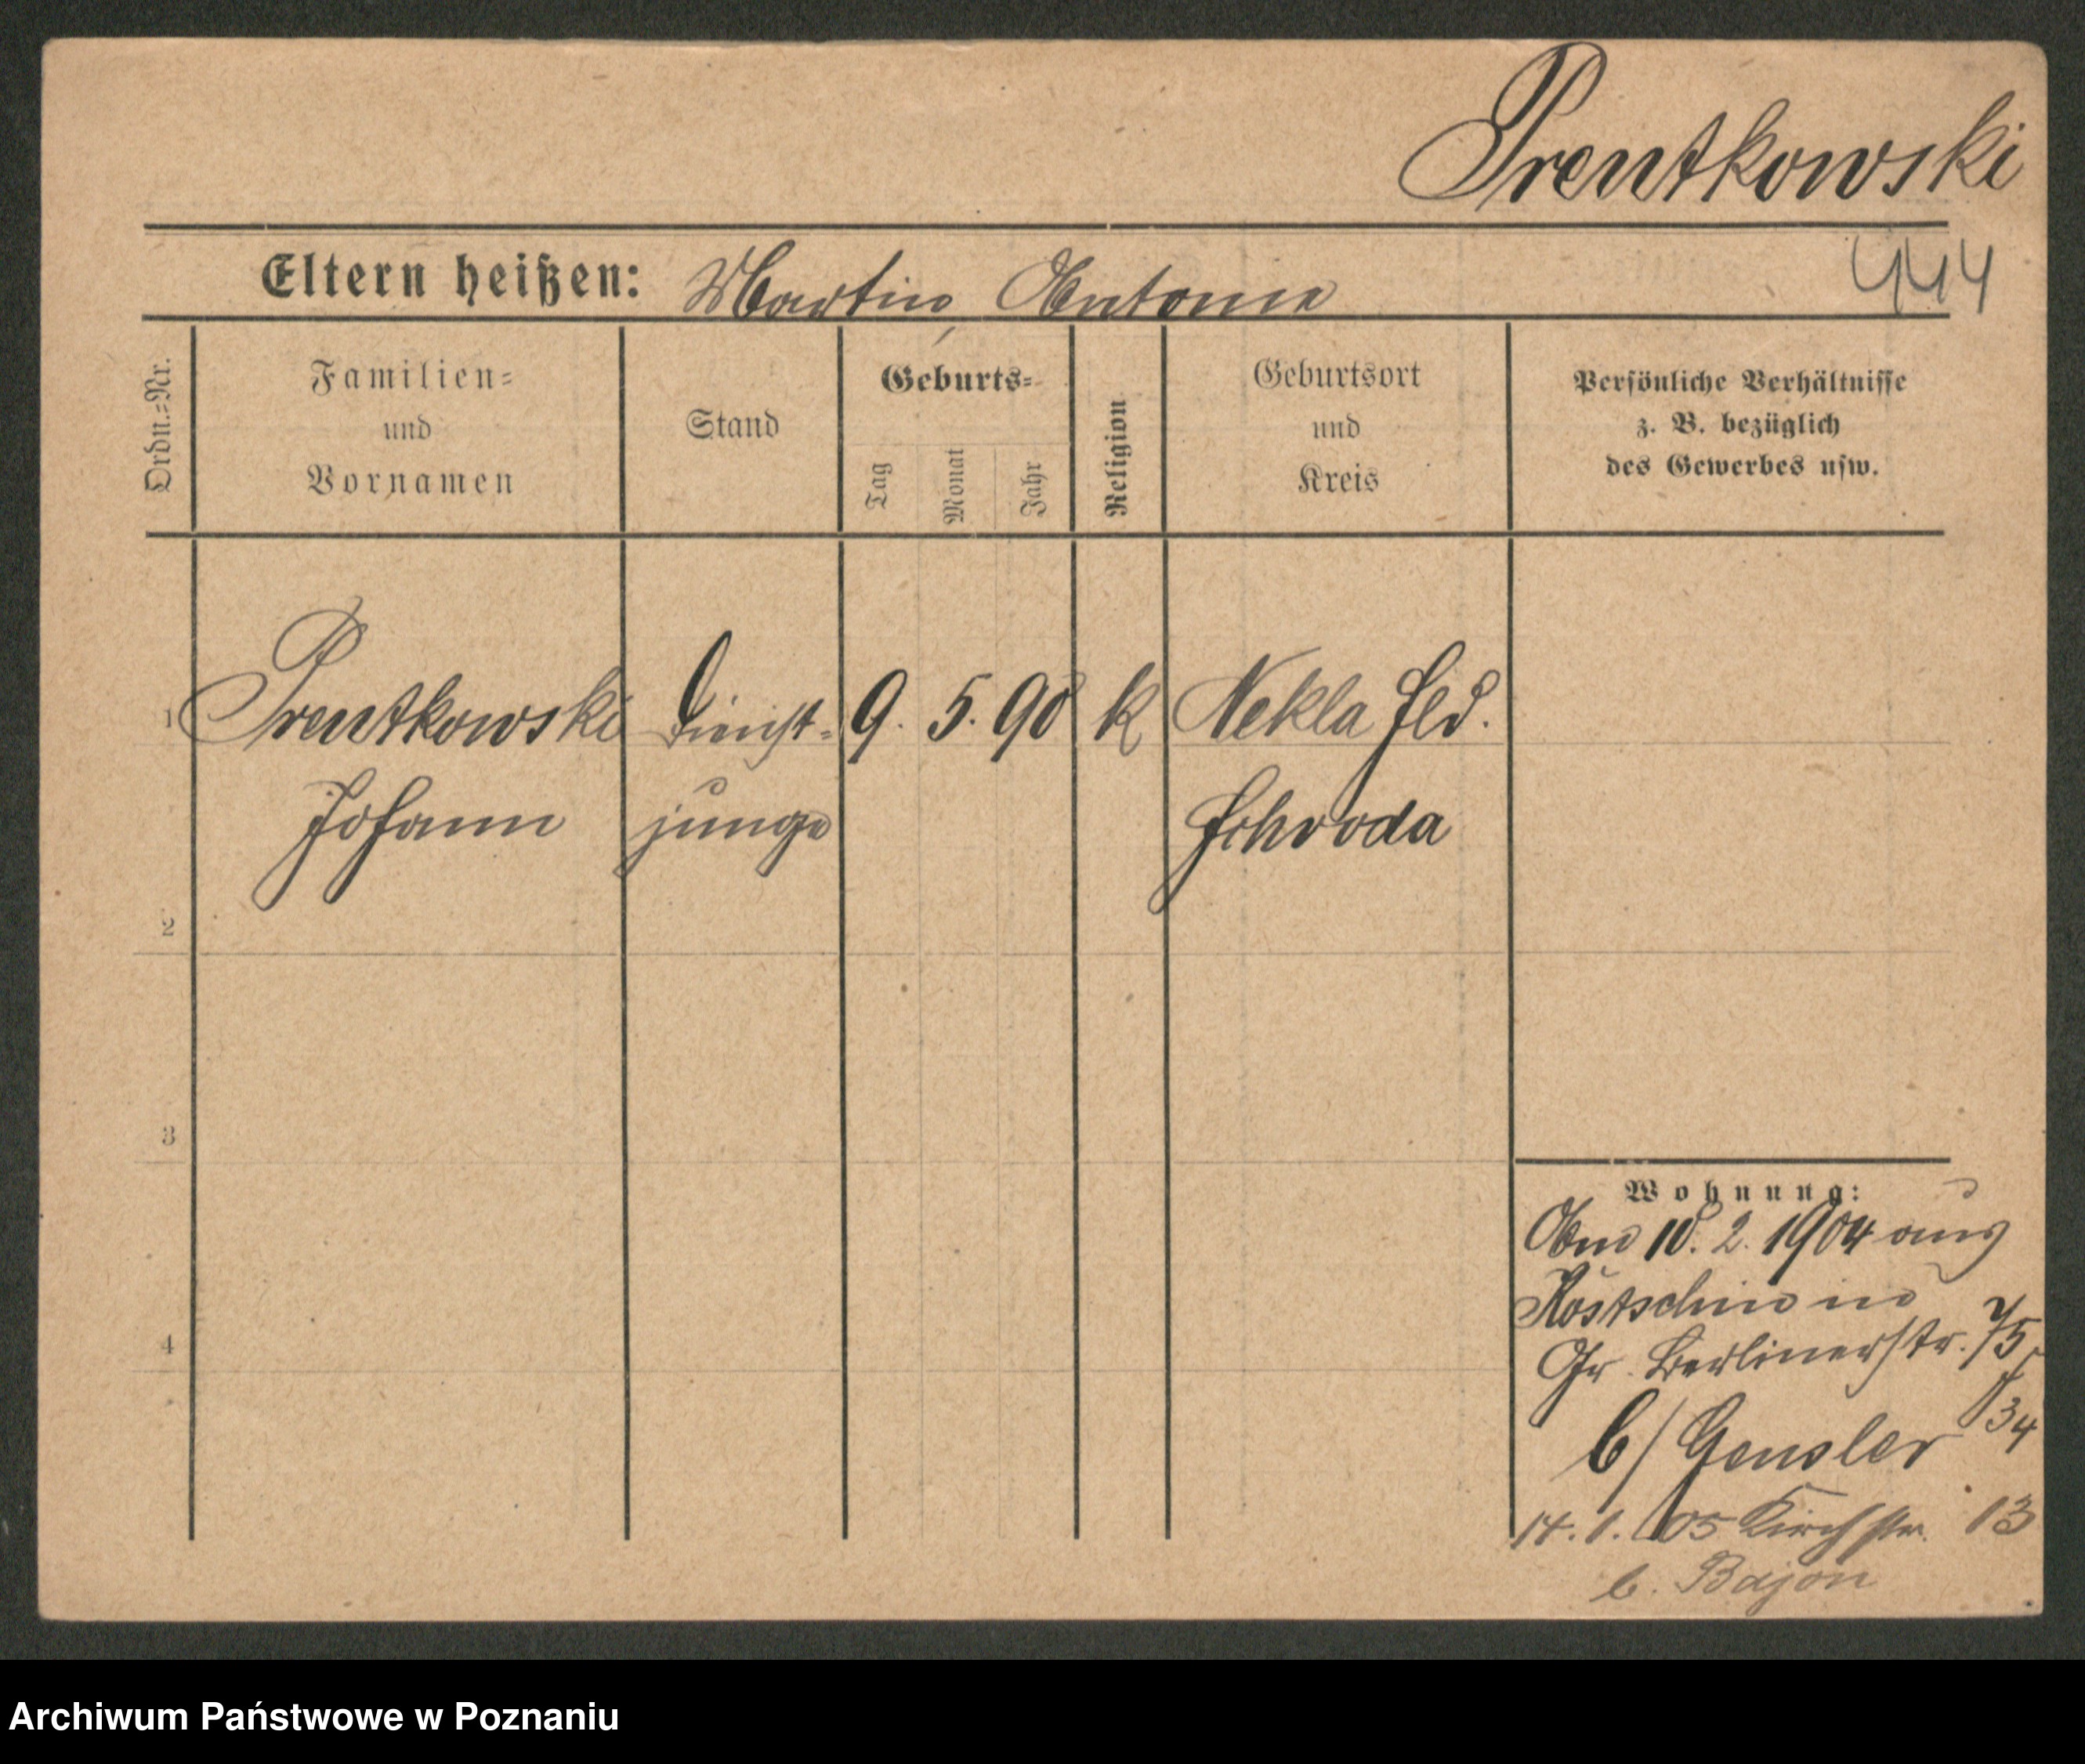 Prentkowski
Eltern heißen: Martin Antonie
444
Ordn.-Nr.
Familien- und Vornamen
Stand
Geburts-
Tag
Monat
Jahr
Religion
Geburtsort und Kreis
Persönliche Verhältnisse
z. B. bezüglich
des Gewerbes usw.
1 Prentkowski Dienst- 9. 5. 90 k Nekla Hld.
Johann junge Schroda
2
3
4
Wohnung:
Am 10. 2. 1904 aus
Kostschin in
Gr. Berlinerstr. 75
34
b/ Gensler
14. 1. 05 Kirchstr. 13
b. Bajon
Archiwum Państwowe w Poznaniu